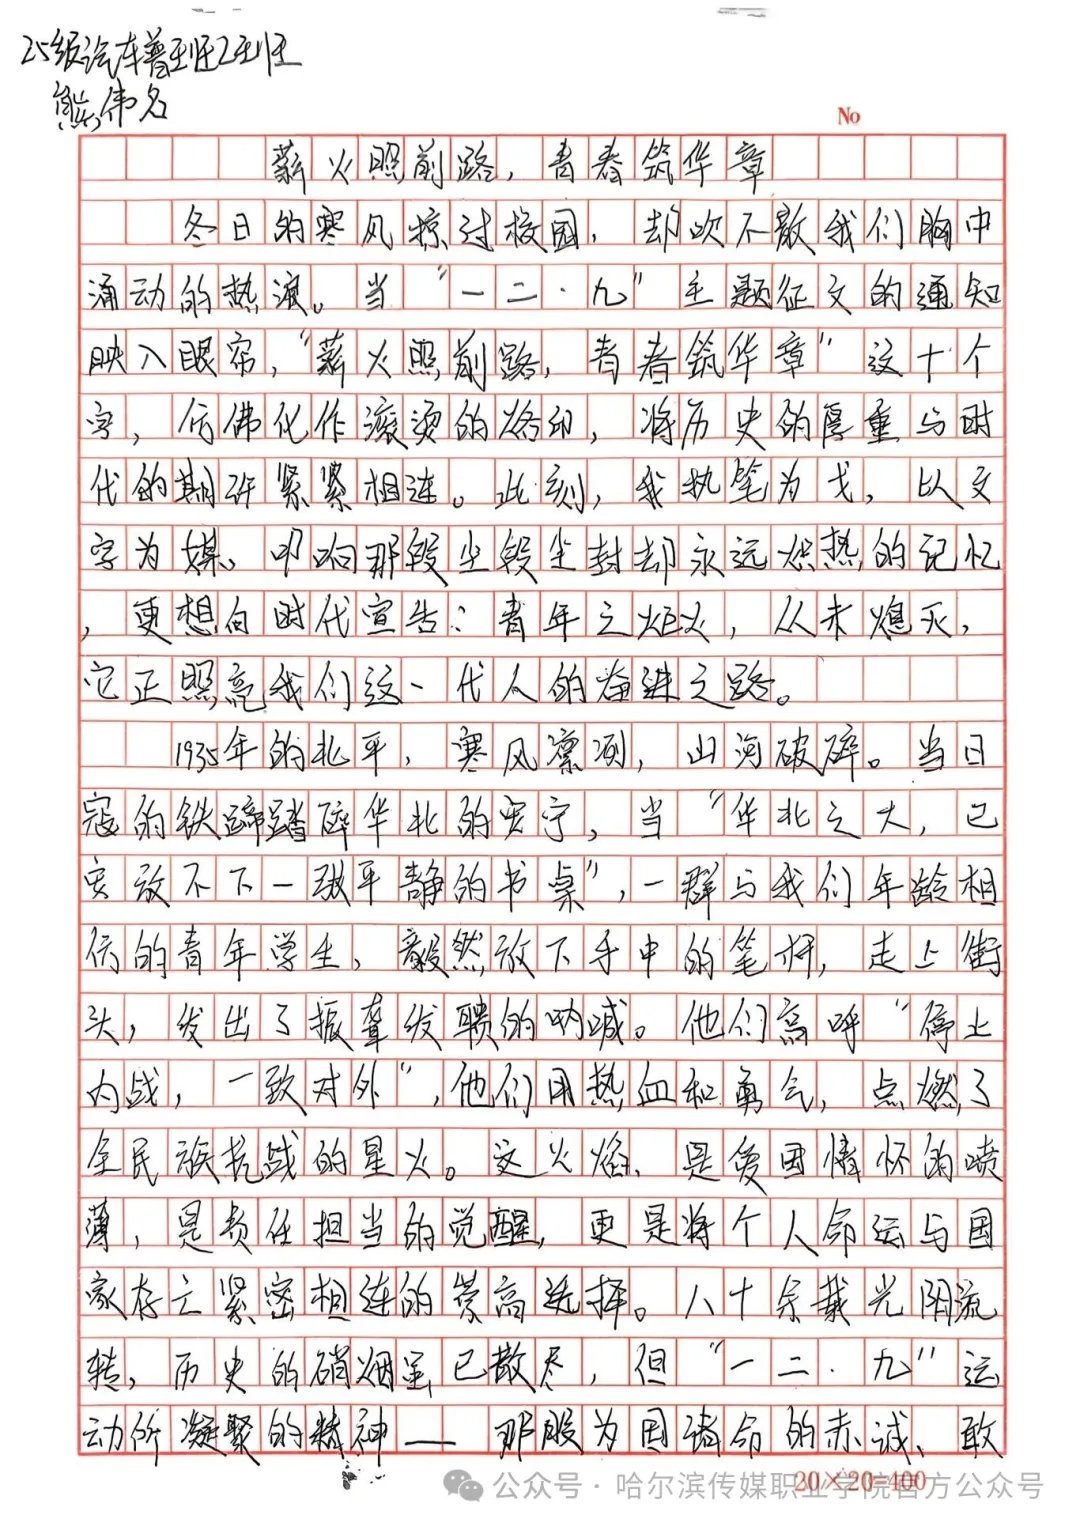 25级汽车普班2班
熊伟名
No
薪火照前路，青春筑华章
冬日的寒风掠过校园，却吹不散我们胸中
涌动的热浪。当“一二·九”主题征文的通知
映入眼帘，“薪火照前路，青春筑华章”这十个
字，仿佛化作滚烫的烙印，将历史的厚重与时
代的期许紧紧相连。此刻，我执笔为戈，以文
字为媒。叩响那段尘段尘封却永远炽热的记忆
，更想向时代宣告：青年之炬火，从未熄灭，
它正照亮我们这一代人的奋进之路。
1935年的北平，寒风凛冽，山河破碎。当日
寇的铁蹄踏碎华北的安宁，当“华北之大，已
安放不下一张平静的书桌”，一群与我们年龄相
仿的青年学生，毅然放下手中的笔杆，走上街
头，发出了振聋发聩的呐喊。他们高呼“停止
内战，一致对外”，他们用热血和勇气，点燃了
全民族抗战的星火。这火焰，是爱国情怀的喷
薄，是责任担当的觉醒，更是将个人命运与国
家存亡紧密相连的崇高选择。八十余载光阴流
转，历史的硝烟虽已散尽，但“一二·九”运
动所凝聚的精神——那股为国请命的赤诚、敢
20×20=400
公众号·哈尔滨传媒职业学院官方公众号